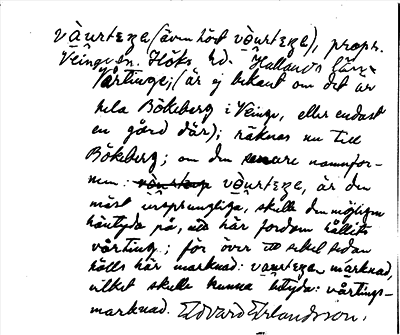 vàurteze (även hört vòurteze), propr.
Veinge sn. Höks hd. Hallands län:
Vårtinge; (är ej bekant om det är
hela Bökeberg i Veinge, eller endast
en gård där); räknas nu till
Bökeberg; om den senare namnfor-
men: vòurteze, är den
mest ursprungliga, skulle den möjligen
häntyda på, att här fordom hållits
vårting; för över ett sekel sedan
hölls här marknad: vaurtezen marknad,
vilket skulle kunna betyda: vårtings-
marknad. Edvard Erlandsson.